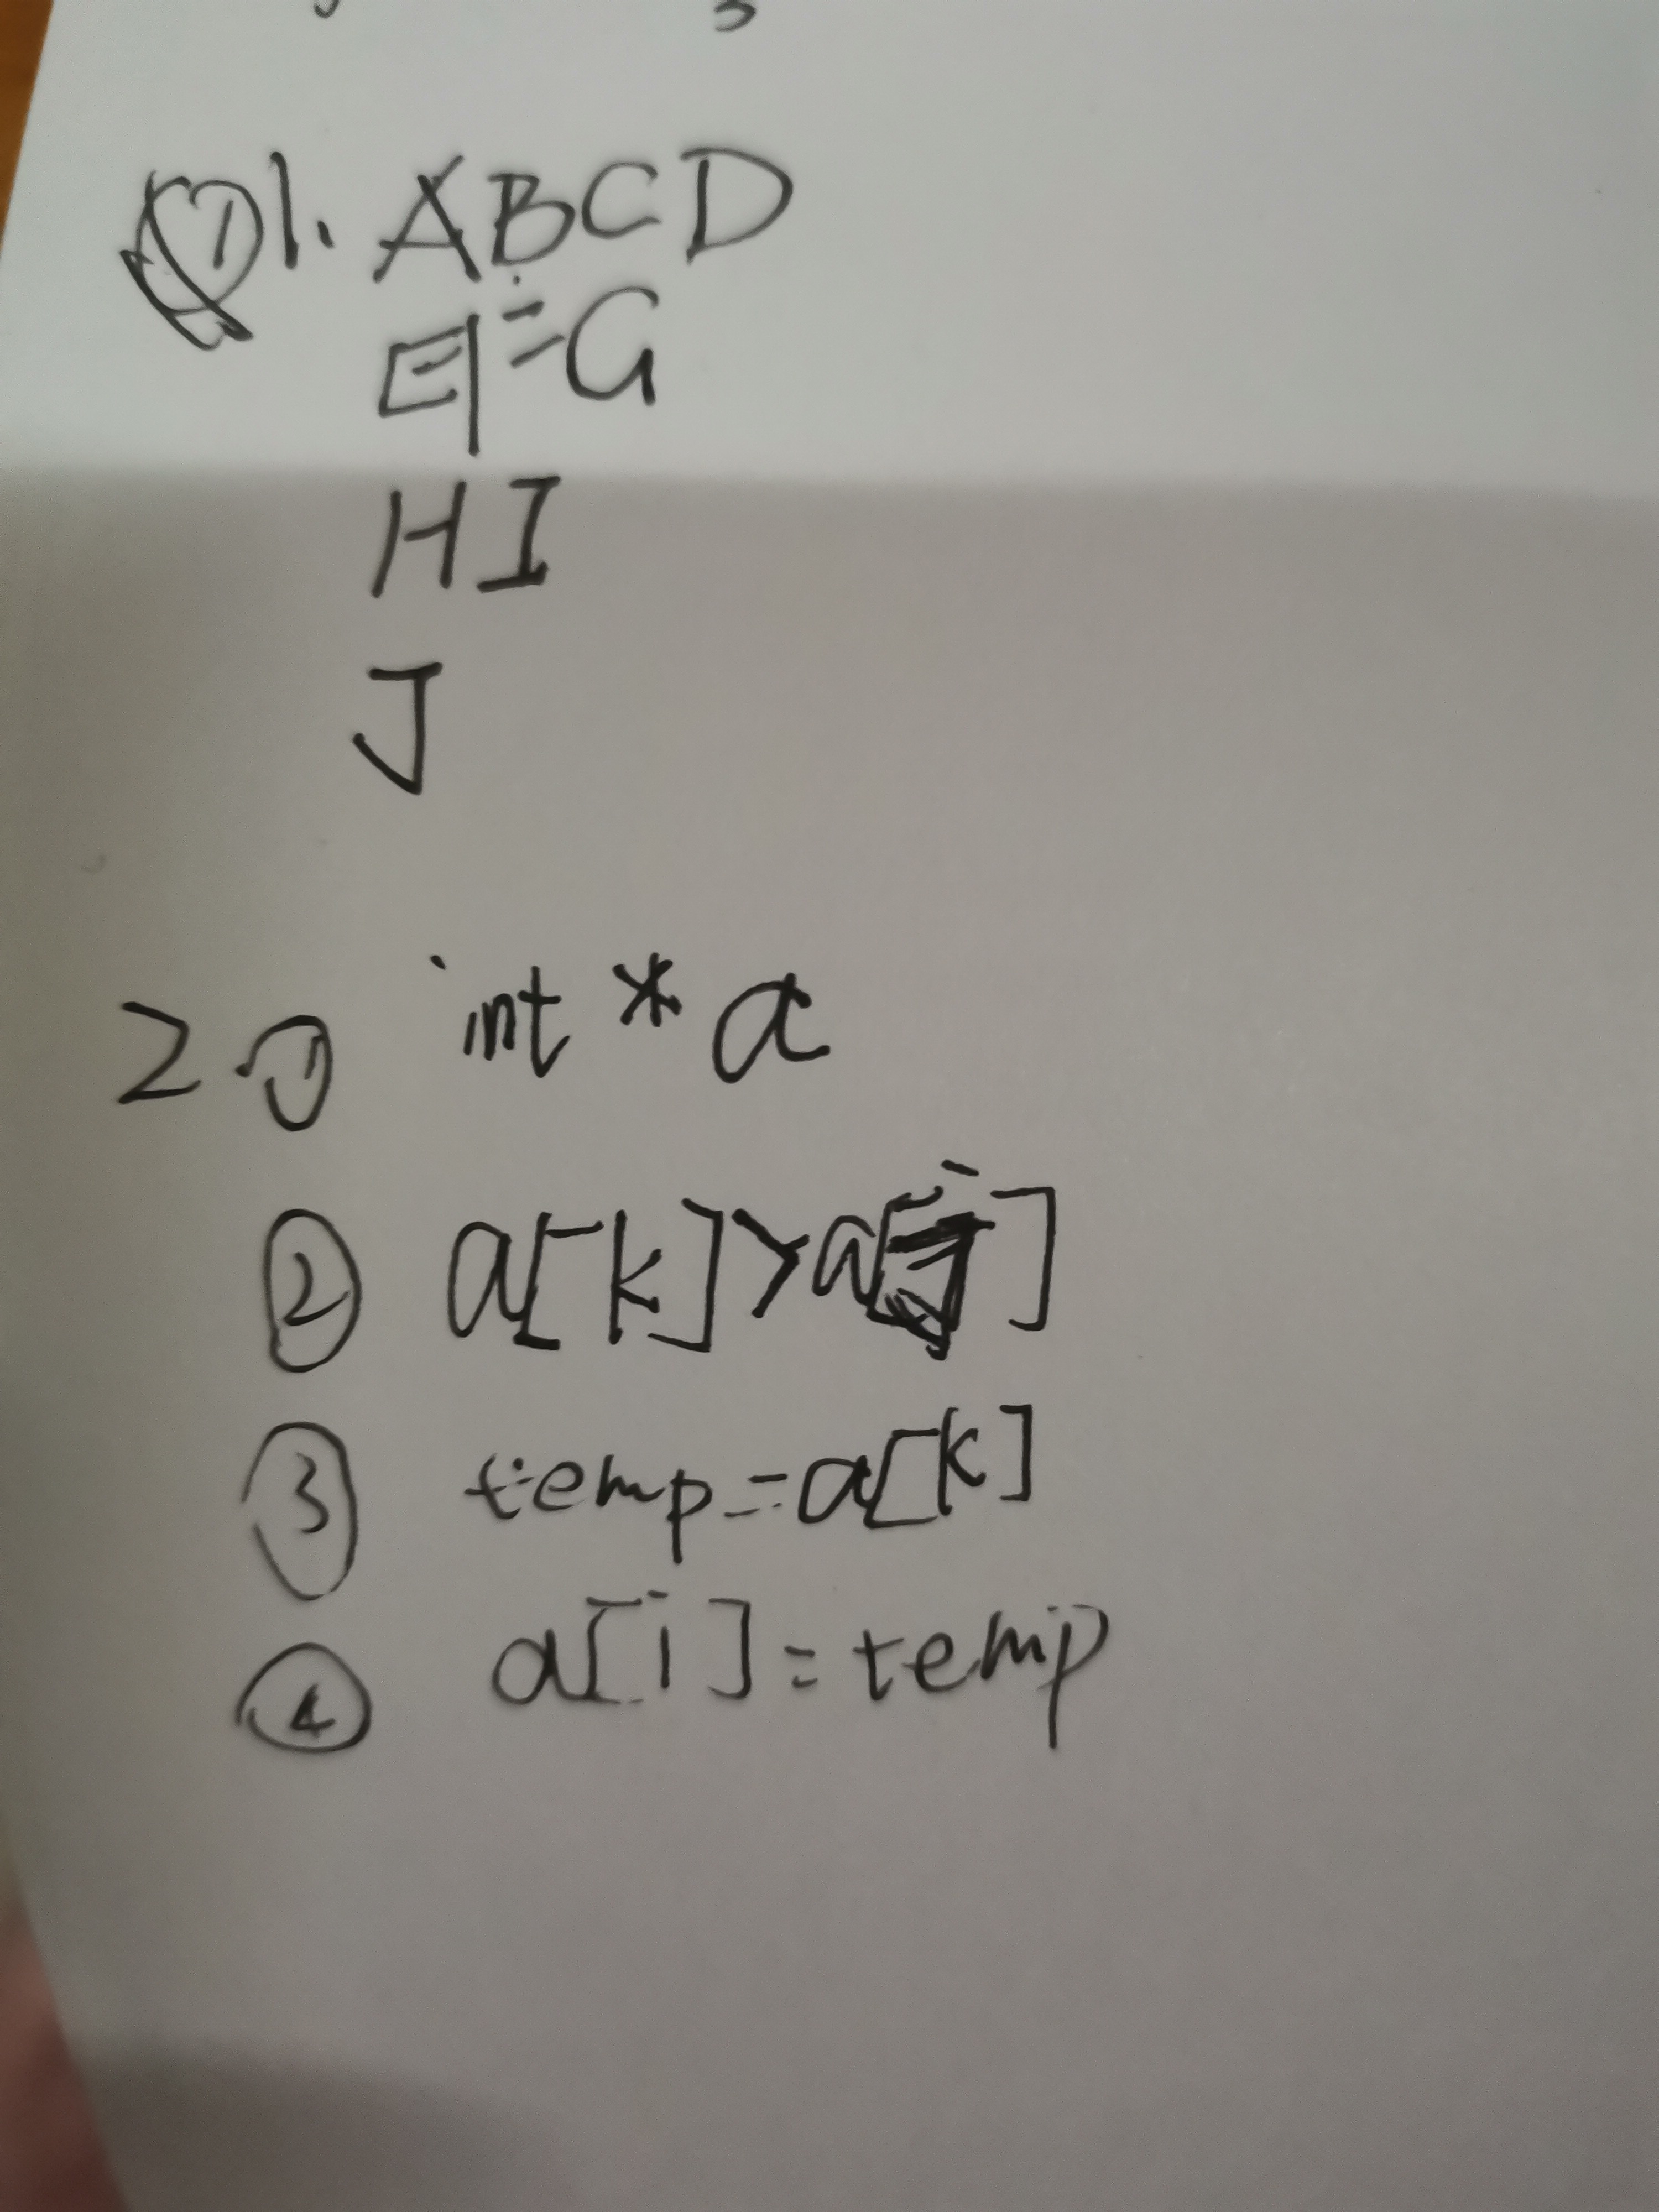 1. ABCD
EFG
HI
J
2 ① int *a
② a[k]>a[j]
③ temp=a[k]
④ a[i]=temp